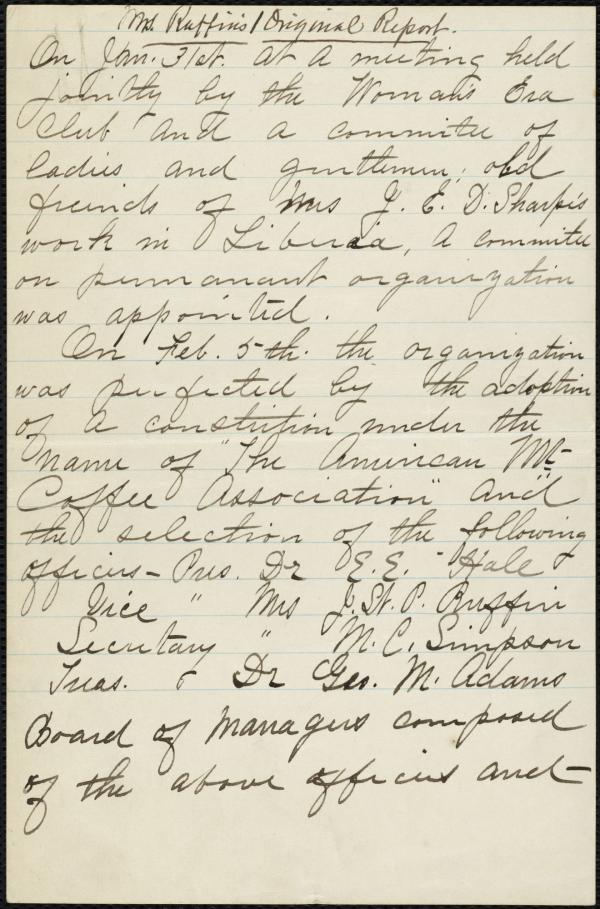 Mrs. Ruffin's / Original Report.
On Jan. 31st. at a meeting held
jointly by the Woman's Era
Club and a commitee of
ladies and gentlemen, old
freinds of Mrs J. E. D. Sharp's
work in Liberia, a commitee
on permanant organization
was appointed.
On Feb. 5th. the organization
was perfected by the adoption
of a constitution under the
name of "The American Mt-
Coffee Association" and
the selection of the following
officers - Pres. Dr E. E. Hale
Vice " Mrs J. St. P. Ruffin
Secretary " M. C. Simpson
Treas. Dr Geo. M. Adams
Board of Managers composed
of the above officers and